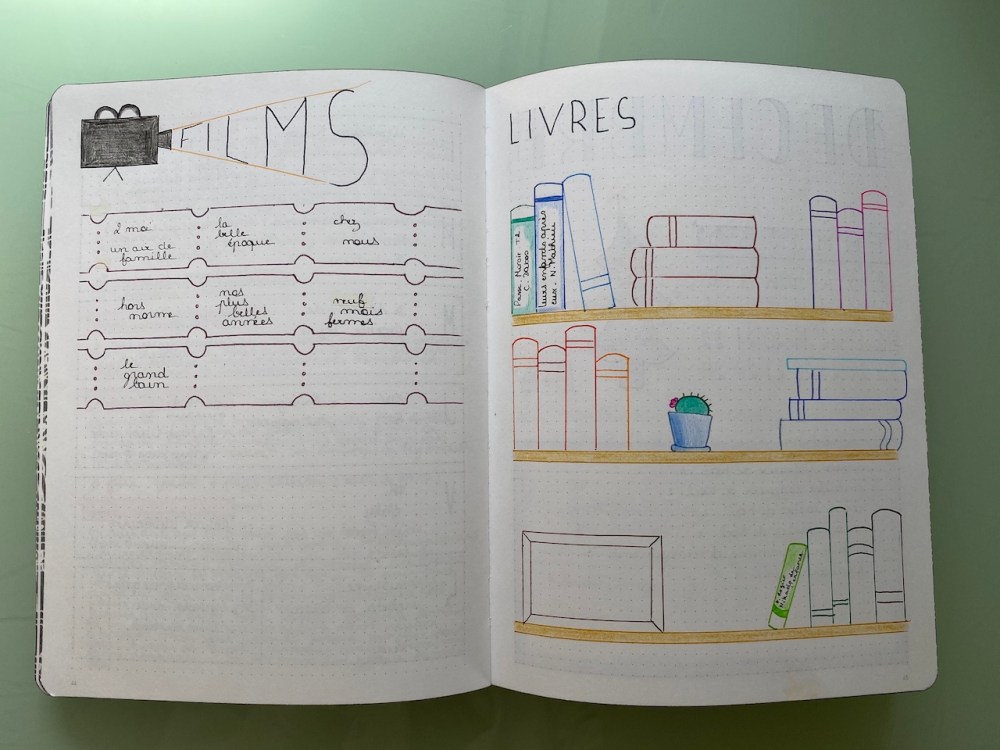 FILMS
2 moi
un air de
famille
la
belle
époque
chez
nous
hors
norme
nos
plus
belles
années
neuf
mois
fermes
le
grand
bain
LIVRES
leurs enfants après
eux. N. Mathieu